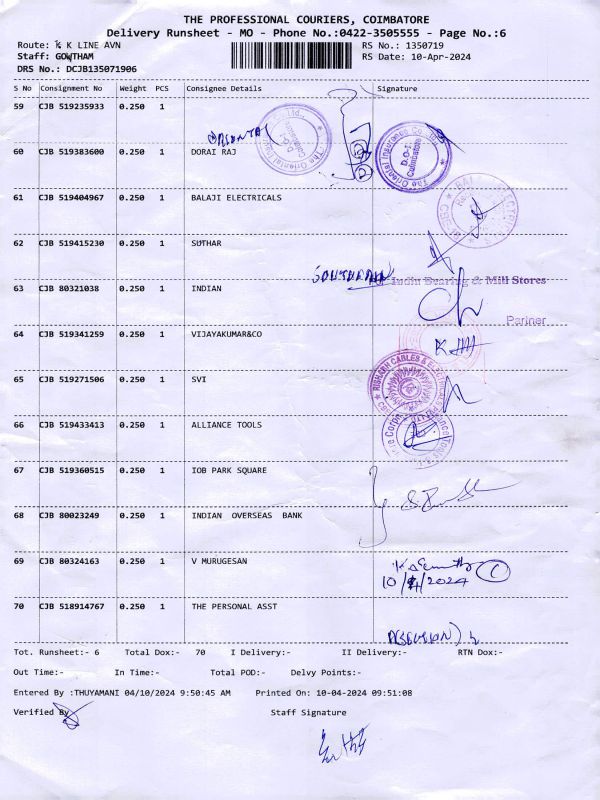 THE PROFESSIONAL COURIERS, COIMBATORE
Delivery Runsheet - MO - Phone No.:0422-3505555 - Page No.:6
Route: K K LINE AVN RS No.: 1350719
Staff: GOWTHAM RS Date: 10-Apr-2024
DRS No.: DCJB135071906
S No Consignment No Weight PCS Consignee Details Signature
59 CJB 519235933 0.250 1
60 CJB 519383600 0.250 1 DORAI RAJ
The Oriental Insurance Co. Ltd., D.O-1 Coimbatore
61 CJB 519404967 0.250 1 BALAJI ELECTRICALS
62 CJB 519415230 0.250 1 SUTHAR
63 CJB 80321038 0.250 1 INDIAN
India Bearing & Mill Stores
Partner
64 CJB 519341259 0.250 1 VIJAYAKUMAR&CO
65 CJB 519271506 0.250 1 SVI
RISHABH CABLES & ELECTRICALS
66 CJB 519433413 0.250 1 ALLIANCE TOOLS
67 CJB 519360515 0.250 1 IOB PARK SQUARE
68 CJB 80023249 0.250 1 INDIAN OVERSEAS BANK
69 CJB 80324163 0.250 1 V MURUGESAN
10/4/2024 1
70 CJB 518914767 0.250 1 THE PERSONAL ASST
Tot. Runsheet:- 6 Total Dox:- 70 I Delivery:- II Delivery:- RTN Dox:-
Out Time:- In Time:- Total POD:- Delvy Points:-
Entered By :THUYAMANI 04/10/2024 9:50:45 AM Printed On: 10-04-2024 09:51:08
Verified By Staff Signature